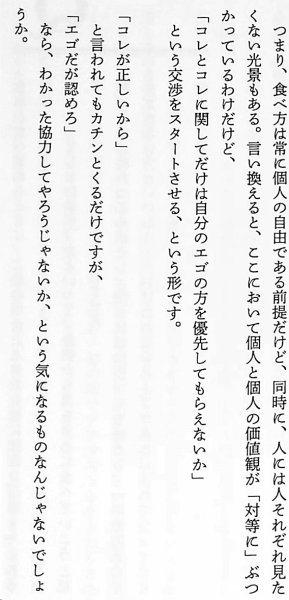 つまり、食べ方は常に個人の自由である前提だけど、同時に、人には人それぞれ見た
くない光景もある。言い換えると、ここにおいて個人と個人の価値観が「対等に」ぶつ
かっているわけだけど、
「コレとコレに関してだけは自分のエゴの方を優先してもらえないか」
という交渉をスタートさせる、という形です。
「コレが正しいから」
と言われてもカチンとくるだけですが、
「エゴだが認めろ」
なら、わかった協力してやろうじゃないか、という気になるものなんじゃないでしょ
うか。